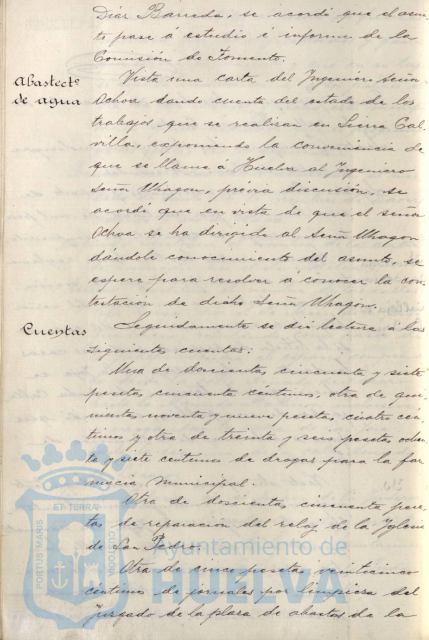 Díaz Barreda, se acordó que el asun-
to pase á estudio é informe de la
Comisión de Fomento.
Abastectº
de agua
Vista una carta del Ingeniero Señor
Ochoa dando cuenta del estado de los
trabajos que se realizan en Sierra Cal-
villa, exponiendo la conveniencia de
que se llame á Huelva al Ingeniero
Señor Uhagon, prévia discusión, se
acordó que en vista de que el señor
Ochoa se ha dirigido al Señor Uhagon
dándole conocimiento del asunto, se
espere para resolver á conocer la con-
testación de dicho Señor Uhagon.
Cuentas
Seguidamente se dió lectura á las
siguientes cuentas:
Una de doscientas cincuenta y siete
pesetas cincuenta céntimos, otra de qui-
nientas noventa y nueve pesetas cuatro cén-
timos y otra de treinta y seis pesetas ochen-
ta y siete céntimos de drogas para la far-
macia municipal.
Otra de doscientas cincuenta pese-
tas de reparación del reloj de la Iglesia
de San Pedro.
Otra de cinco pesetas veinticinco
céntimos de jornales por limpieza del
Juzgado de la plaza de abastos de la
PORTUS MARIS
ET TERRÆ
CUSTODIO
Ayuntamiento de
HUELVA